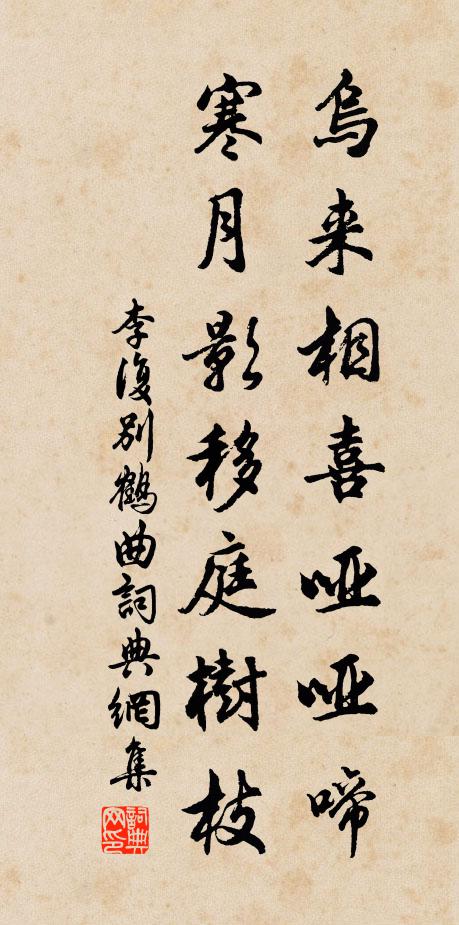 烏来相喜啞啞啼
寒月影移庭樹枝
李復別鶴曲詞典網集
詞典
网印